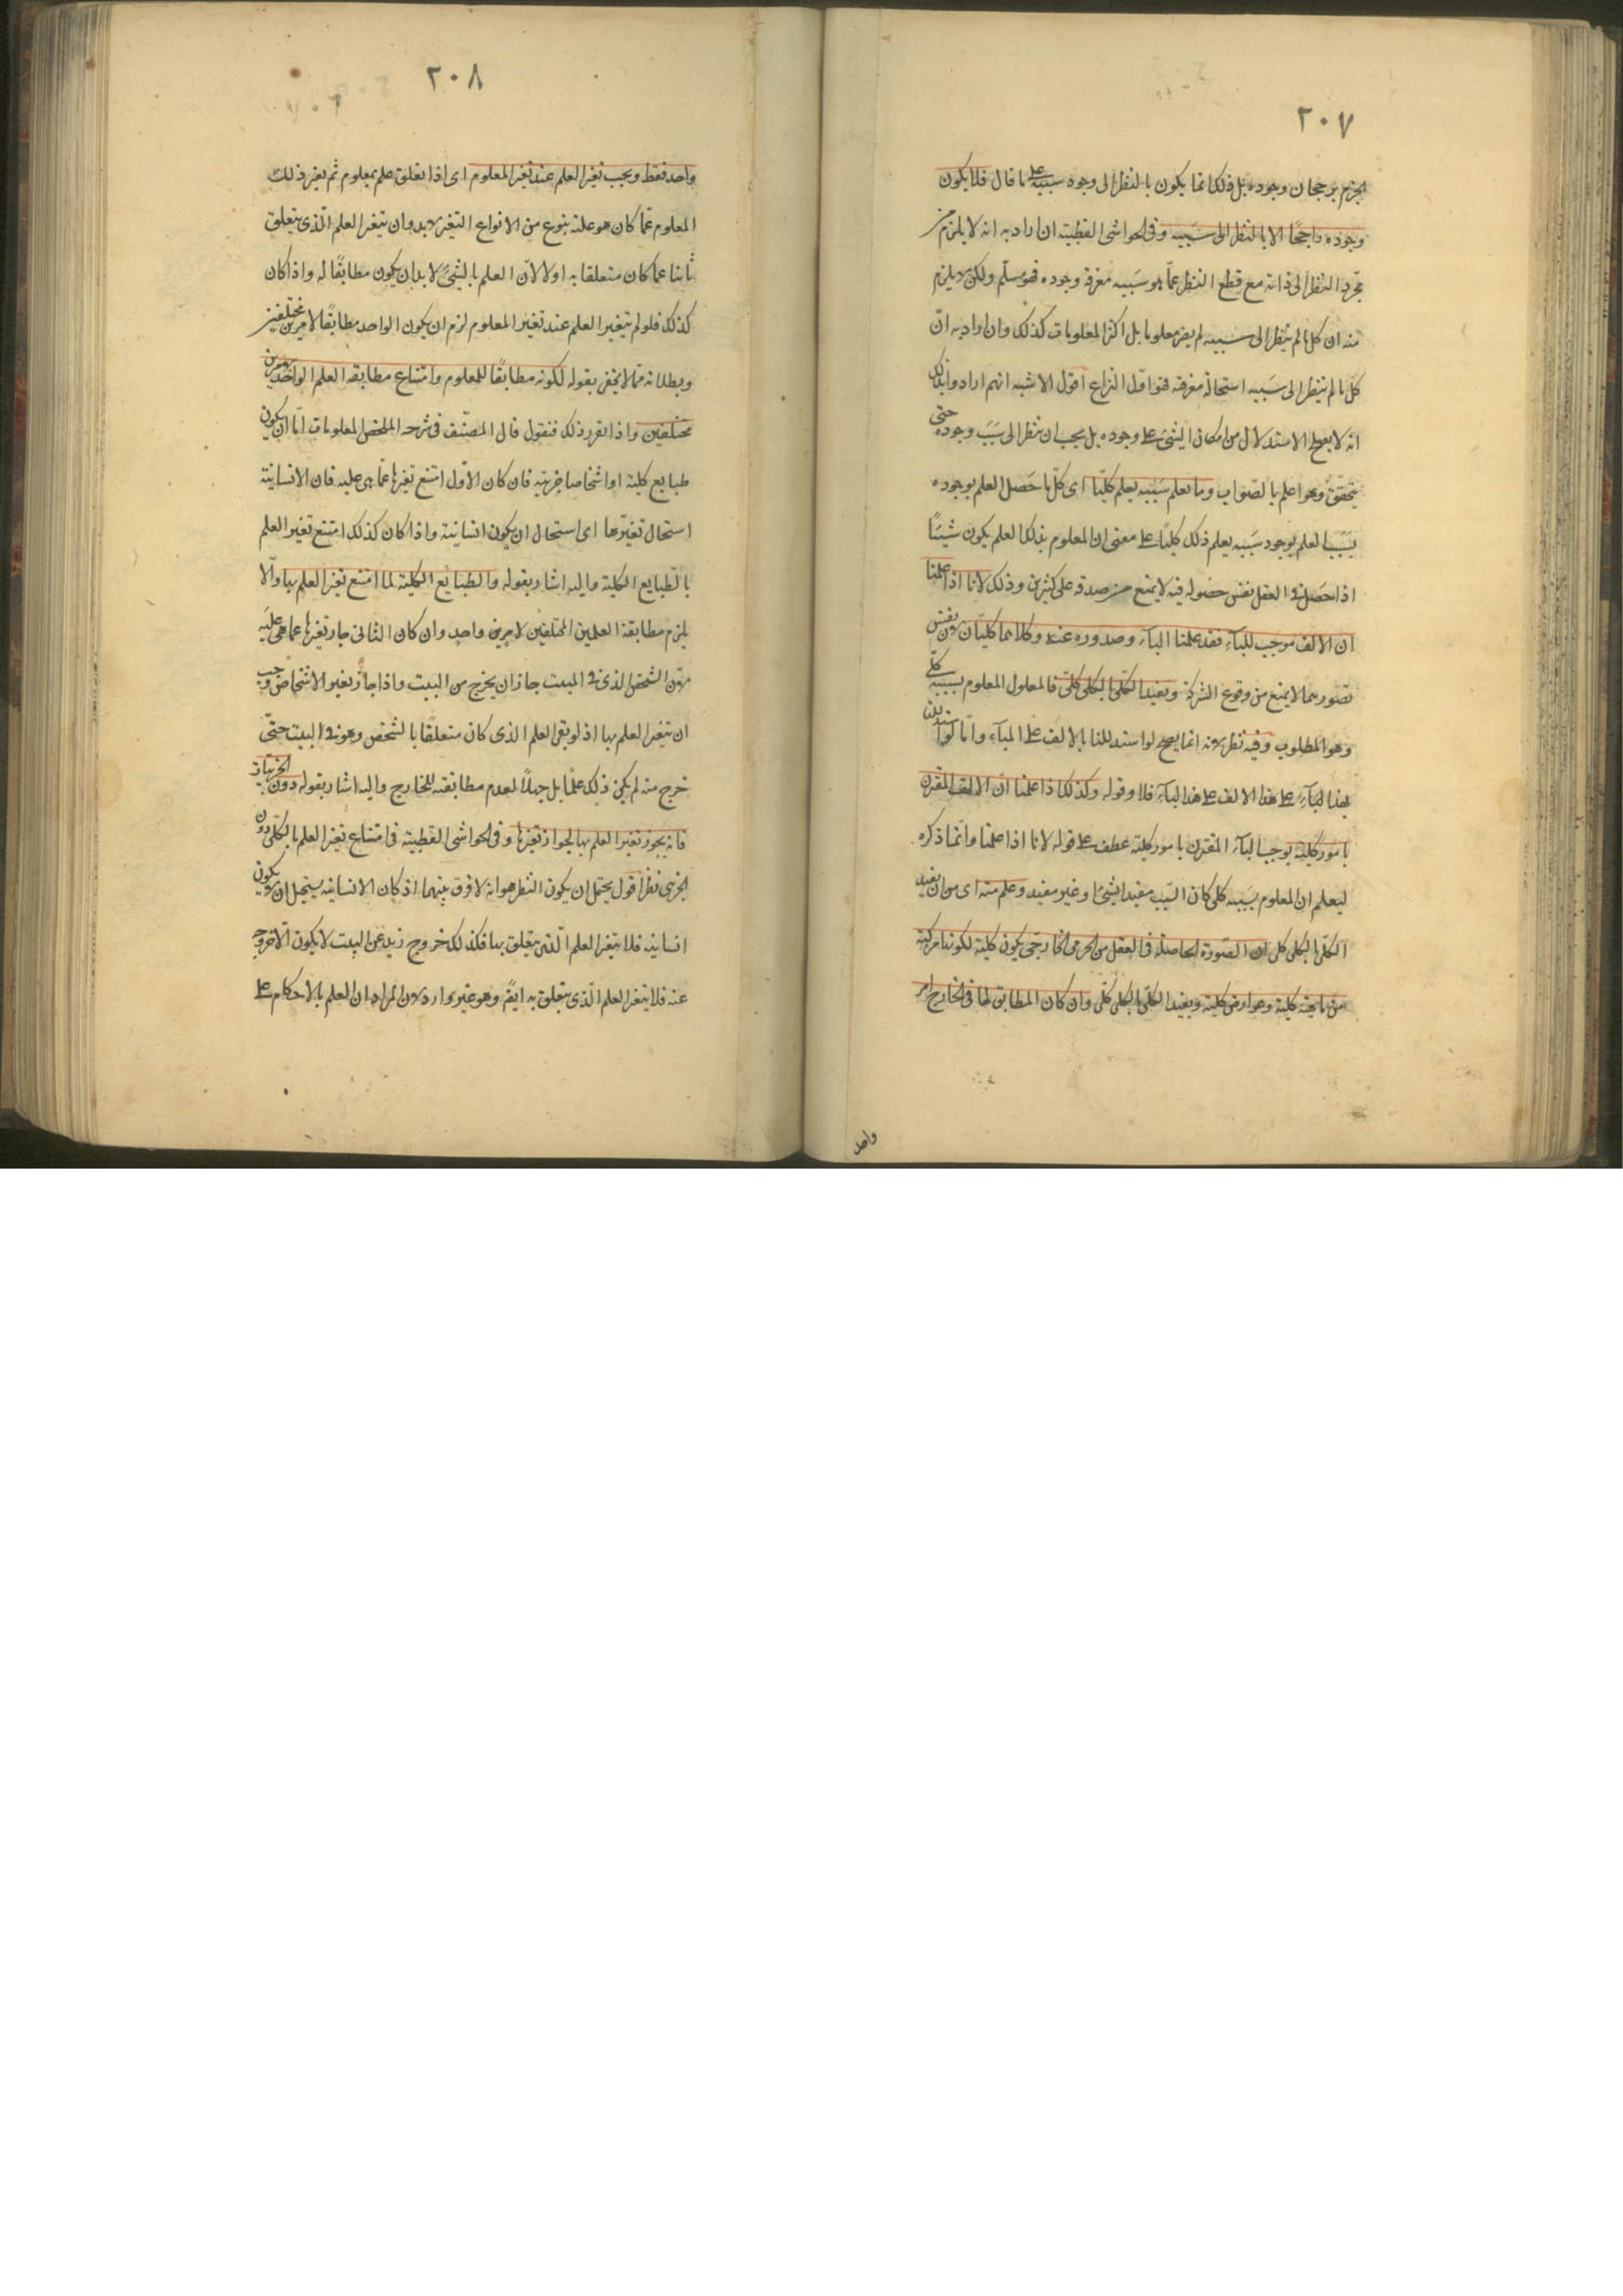 ٢٠٧
الجزم برجحان وجوده بل ذلك انما يكون بالنظر الى وجود سببه على ما قال فلا يكون
وجوده راجحًا الا بالنظر الى سببه وفى الحواشى القطبية ان اراد به انه لا يلزم من
مجرد النظر الى ذاته مع قطع النظر عمّا هو سببه معرفة وجوده فهو مسلّم ولكن لا يلزم
منه ان كل ما لم ينظر الى سببه لم يصر معلوما بل اكثر المعلومات كذلك وان اراد به انّ
كل ما لم ينظر الى سببه استحالة معرفته فهو اوّل النزاع اقول الاشبه انهم ارادوا بذلك
انه لا يصح الاستدلال من امكان الشئ على وجوده بل يجب ان ننظر الى سبب وجوده حتى
يتحقق وهو اعلم بالصّواب وما يعلم بسببه يعلم كليّا اى كلّ ما حصل العلم بوجوده
بسبب العلم بوجود سببه يعلم ذلك كليّا على معنى ان المعلوم بذلك العلم يكون شيئًا
اذا حصل فى العقل نفس حصوله فيه لا يمنع من صدقه على كثيرين وذلك لانا اذا علمنا
ان الالف موجب للبآء فقد علمنا البآء وصدوره عنه وكلاهما كليّان لان نفس
تصورهما لا يمنع من وقوع الشركة وتقييد الكلّى بالكلى كلّى فالمعلول المعلوم بسببه كلّى
وهو المطلوب وفيه نظر لانه انما يصح لو استدللنا بالالف على البآء وامّا لو استدللنا
بهذا البآء على هذا الالف على هذا البآء فلا وقوله وكذلك اذا علمنا انّ الالف المقترن
بامور كلية يوجب البآء المقترن بامور كلية عطف على قوله لانا اذا علمنا وانّما ذكره
ليعلم ان المعلوم بسببه كلى كان السّبب مقيدا بشئ او غير مقيد وعلم منه اى من ان تقييد
الكلّى بالكلى كلى ان الصّورة الحاصلة فى العقل من الجزئى الخارجى يكون كلية لكونها مركبة
من ماهية كلية وعوارض كلية وتقييد الكلى بالكلى كلّى وان كان المطابق لها فى الخارج امر
واحد
٢٠٨
واحد فقط ويجب تغير العلم عند تغير المعلوم اى اذا تعلق علم بمعلوم ثم تغير ذلك
المعلوم عمّا كان هو عليه بنوع من الانواع التغير لا بد وان يتغير العلم الّذى يتعلق
ثانيا عما كان متعلقا به اولا لانّ العلم بالشئ لا بد ان يكون مطابقًا له واذا كان
كذلك فلو لم يتغير العلم عند تغير المعلوم لزم ان يكون الواحد مطابقًا لامرين مختلفين
وبطلانه ممّا لا يخفى بقوله لكونه مطابقًا للمعلوم وامتناع مطابقة العلم الواحد لامرين
مختلفين واذا تقرر ذلك فنقول قال المصنّف فى شرحه الملخص المعلومات امّا ان يكون
طبايع كلية او اشخاصا جزئية فان كان الاوّل امتنع تغيرها عمّا هى عليه فان الانسانية
استحال تغيّرها اى استحال ان يكون انسانية واذا كان كذلك امتنع تغير العلم
بالطبايع الكلية واليه اشار بقوله والطبايع الكلية لما امتنع تغير العلم بها والّا
يلزم مطابقة العلمين المختلفين لامرين واحد وان كان الثانى جاز تغيرها عما هى عليه
لانّ الشخص الذى فى البيت جاز ان يخرج من البيت واذا جاز تغير الاشخاص وجب
ان يتغير العلم بها اذ لو بقى العلم الذى كان متعلقًا بالشخص وهو فى البيت حتّى
خرج منه لم يكن ذلك علمًا بل جهلًا لعدم مطابقته للخارج واليه اشار بقوله دون الجزئيات
فانه يجوز تغير العلم بها لجواز تغيرها وفى الحواشى القطبية فى امتناع تغير العلم بالكلى دون
الجزئى نظر اقول يحتمل ان يكون النظر هو انه لا فرق بينهما اذ كان الانسانية يستحيل ان لا يكون
انسانية فلا يتغير العلم الّذى يتعلق بها فكذلك خروج زيد عن البيت لا يكون الّا خروج
عنه فلا يتغير العلم الّذى يتعلق به ايضًم وهو غير وارد لان المراد ان العلم بالاحكام على